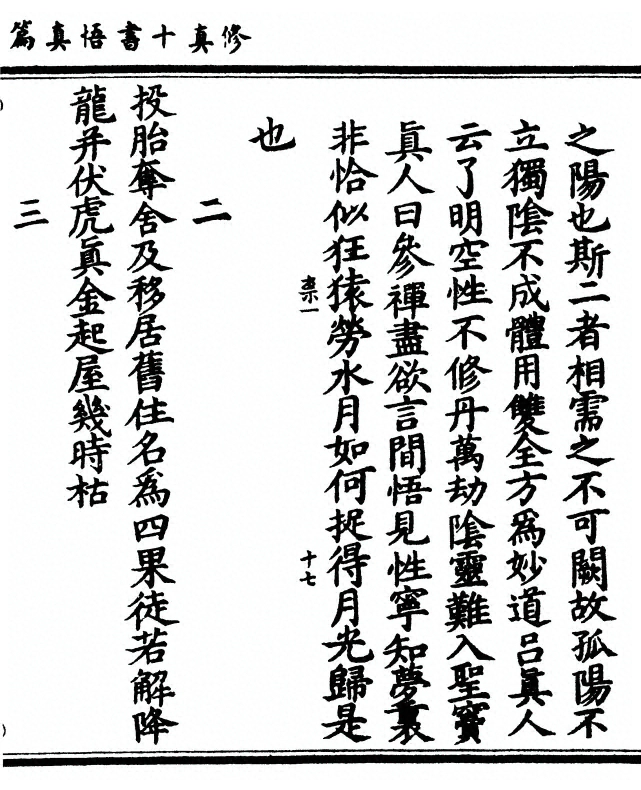 修真十書悟真篇
之陽也斯二者相需之不可闕故孤陽不
立獨陰不成體用雙全方爲妙道呂眞人
云了明空性不修丹萬劫陰靈難入聖竇
眞人曰參禪盡欲言間悟見性寧知夢裏
非恰似狂猿勞水月如何捉得月光歸是
柰一
十七
也
二
投胎奪舍及移居舊住名爲四果徒若解降
龍并伏虎眞金起屋幾時枯
三